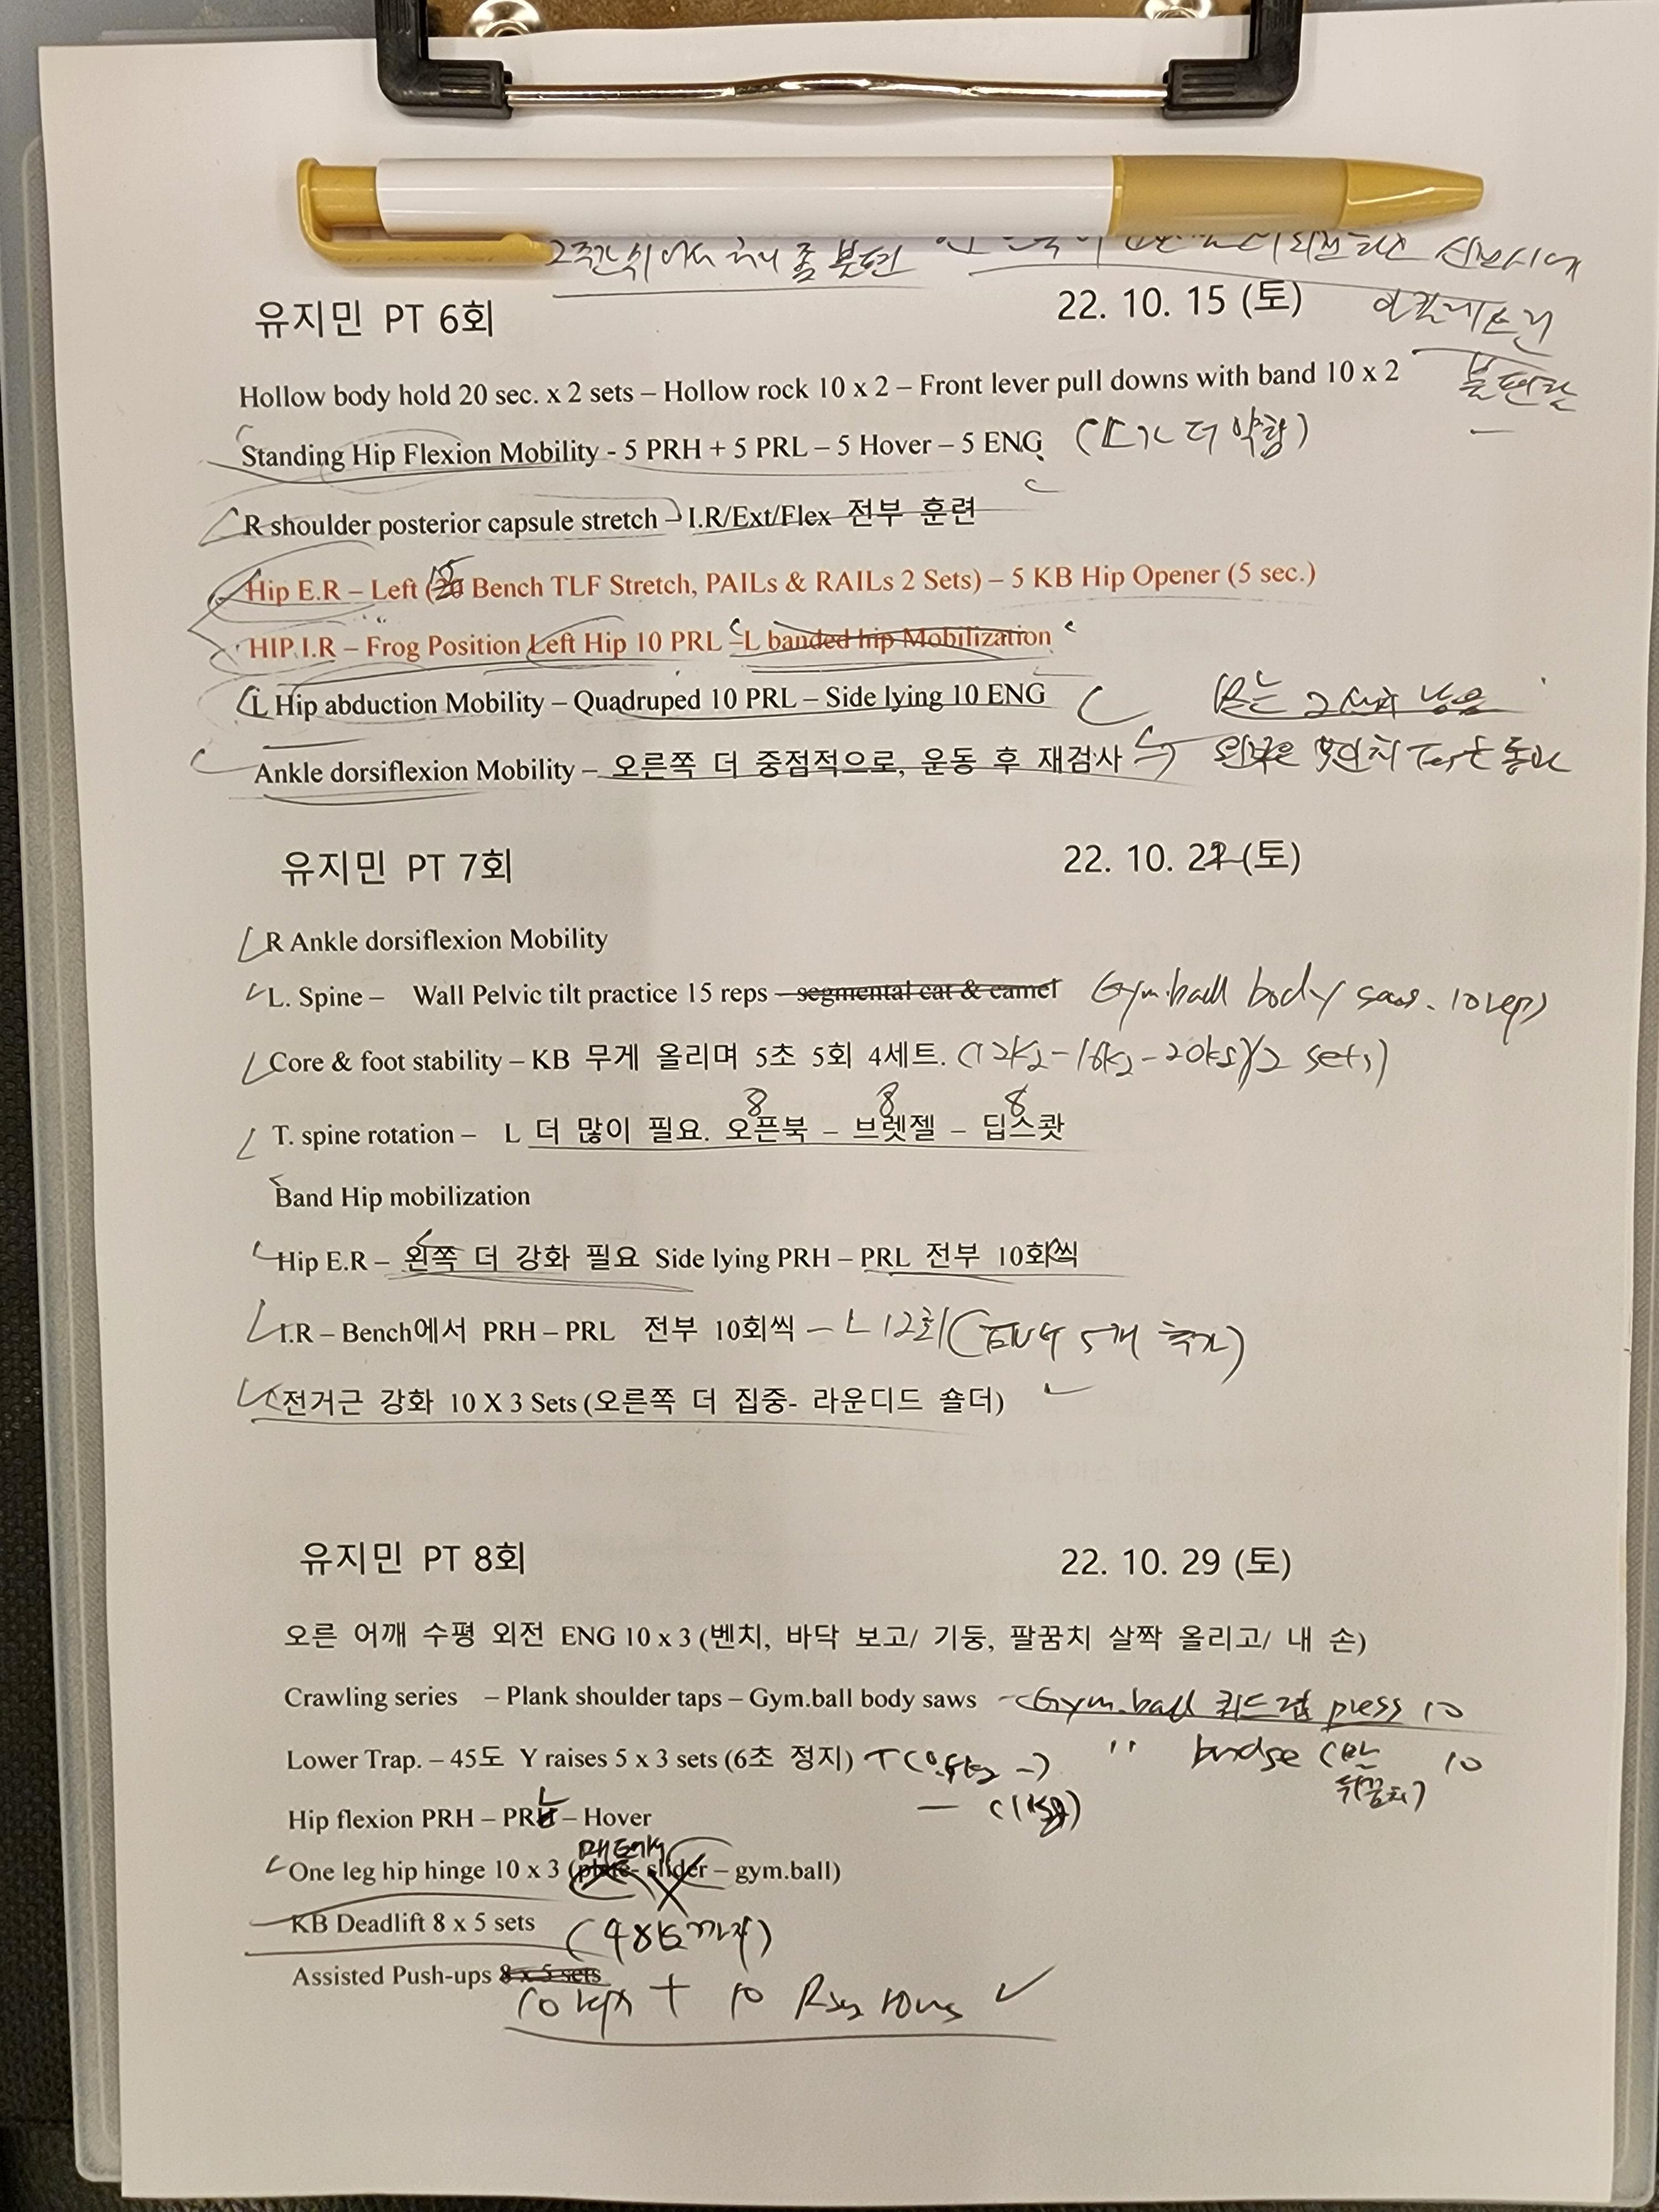 2주간 쉬어서 허리 좀 불편
유지민 PT 6회 22. 10. 15 (토)
불편함
Hollow body hold 20 sec. x 2 sets – Hollow rock 10 x 2 – Front lever pull downs with band 10 x 2
Standing Hip Flexion Mobility - 5 PRH + 5 PRL – 5 Hover – 5 ENG (L가 더 약함)
R shoulder posterior capsule stretch – I.R/Ext/Flex 전부 훈련
Hip E.R – Left (20 15 Bench TLF Stretch, PAILs & RAILs 2 Sets) – 5 KB Hip Opener (5 sec.)
HIP I.R – Frog Position Left Hip 10 PRL – L banded hip Mobilization
L Hip abduction Mobility – Quadruped 10 PRL – Side lying 10 ENG
Ankle dorsiflexion Mobility – 오른쪽 더 중점적으로, 운동 후 재검사 Test 통과
유지민 PT 7회 22. 10. 22 (토)
R Ankle dorsiflexion Mobility
L. Spine – Wall Pelvic tilt practice 15 reps – segmental cat & camel Gym.ball body saws. 10 reps
Core & foot stability – KB 무게 올리며 5초 5회 4세트. (12kg-16kg-20kg)(2 sets)
8 8 8
T. spine rotation – L 더 많이 필요. 오픈북 – 브렛젤 – 딥스쾃
Band Hip mobilization
Hip E.R – 왼쪽 더 강화 필요 Side lying PRH – PRL 전부 10회씩
I.R – Bench에서 PRH – PRL 전부 10회씩 – L 12회 (ENG 5개 추가)
전거근 강화 10 X 3 Sets (오른쪽 더 집중- 라운디드 숄더)
유지민 PT 8회 22. 10. 29 (토)
오른 어깨 수평 외전 ENG 10 x 3 (벤치, 바닥 보고/ 기둥, 팔꿈치 살짝 올리고/ 내 손)
Crawling series – Plank shoulder taps – Gym.ball body saws – Gym.ball 쿼드럽 press 10
Lower Trap. – 45도 Y raises 5 x 3 sets (6초 정지) T (0.5kg –) " bridge ( 뒤꿈치) 10
– (1kg)
Hip flexion PRH – PRL – Hover
One leg hip hinge 10 x 3 (plate- slider – gym.ball)
KB Deadlift 8 x 5 sets (48kg까지)
Assisted Push-ups 8 x 5 sets
10 reps + 10